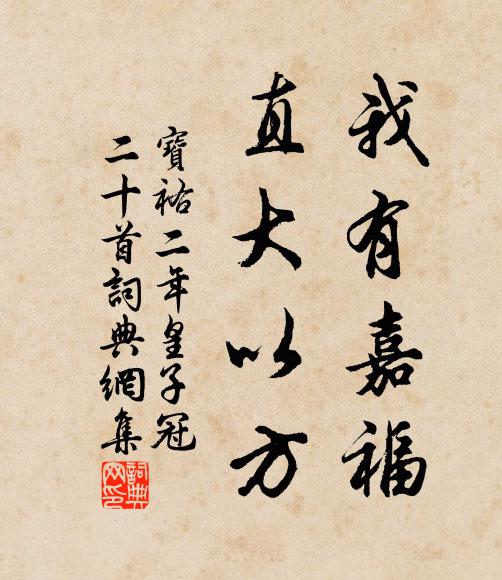 我有嘉福
直大以方
寶祐二年皇子冠
二十首詞典網集
詞典網印